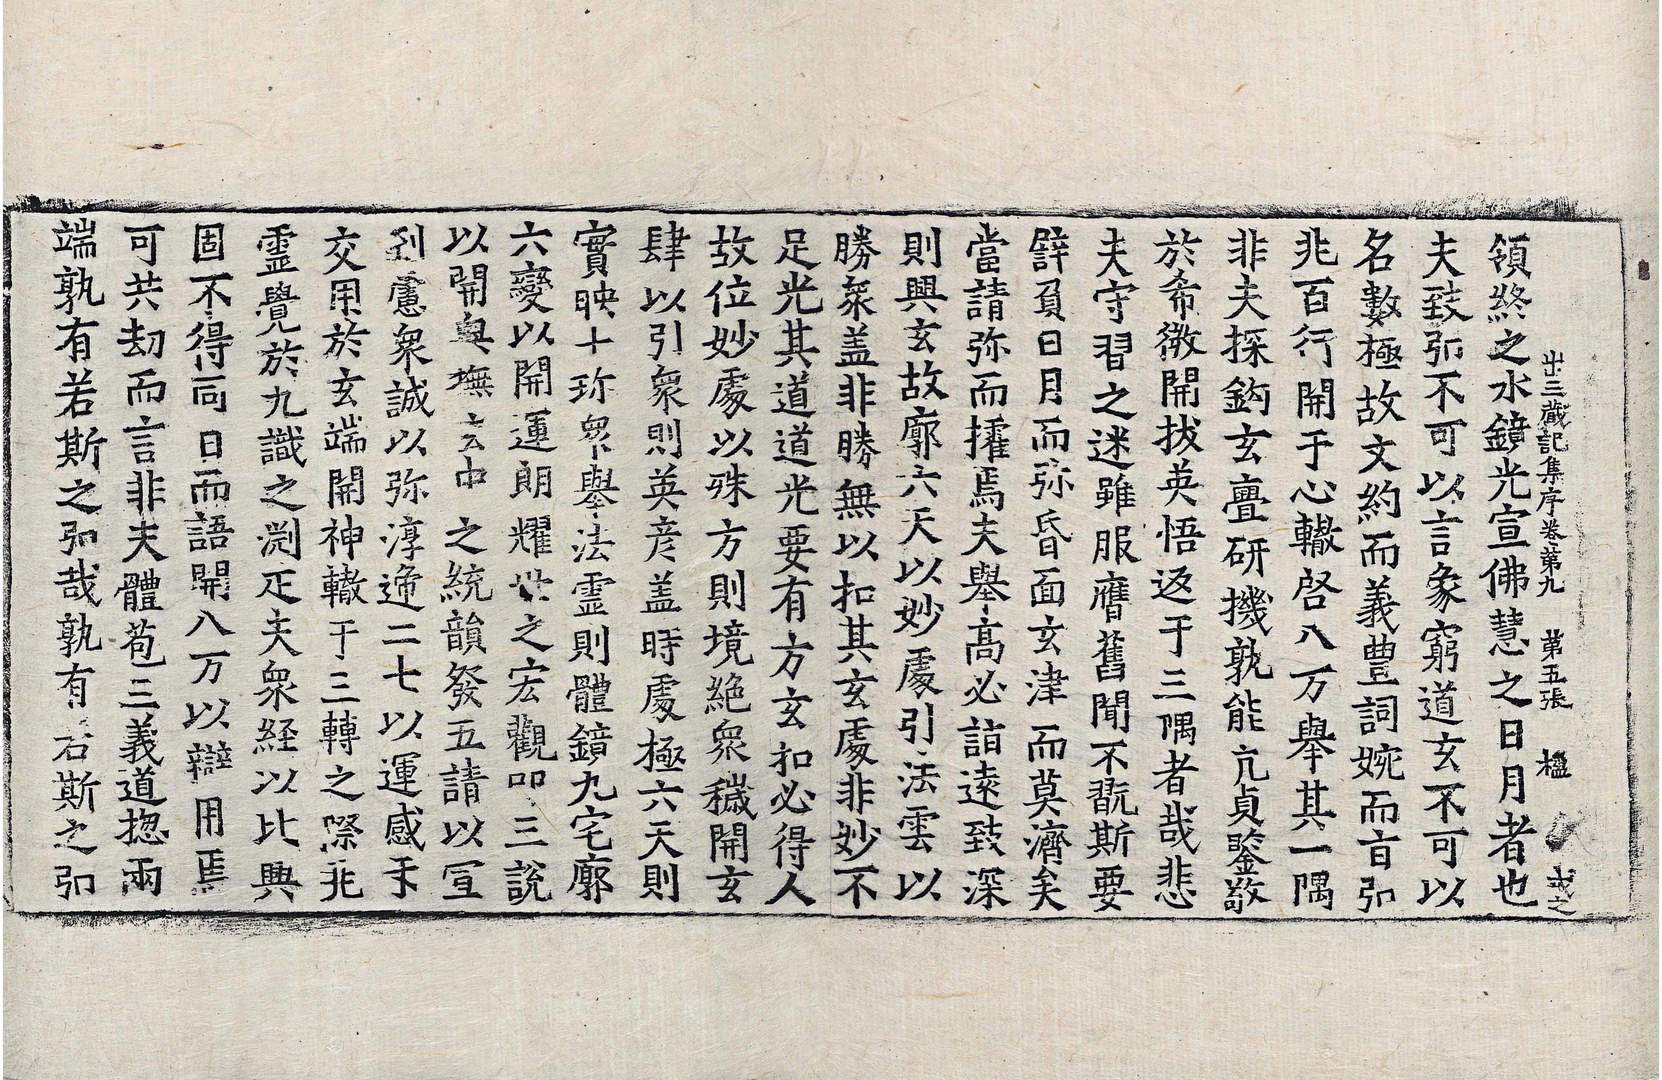 出三藏記集序卷第九 第五張 楹
領終之水鏡光宣佛慧之日月者也
夫致弥不可以言象窮道玄不可以
名數極故文約而義豊詞婉而旨弥
兆百行開于心轍啓八万舉其一隅
非夫探鈎玄亹研機孰能亢貞鑒敬
於希微開拔英悟返于三隅者哉悲
夫守習之迷雖服膺舊聞不翫斯要
辟負日月而弥昏面玄津而莫濟矣
當請弥而攉焉夫舉高必詣遠致深
則興玄故廓六天以妙處引法雲以
勝衆盖非勝無以扣其玄處非妙不
足光其道道光要有方玄扣必得人
故位妙處以殊方則境絶衆穢開玄
肆以引衆則英彦盖時處極六天則
實映十珎衆舉法霊則體鏡九宅廓
六變以開運朗耀世之宏觀叩三說
以開奥撫玄中之統韻發五請以宣
到慮衆誠以弥淳遖二七以運感于
交用於玄端開神轍于三轉之際兆
霊覺於九識之渕疋夫衆経以比興
固不得同日而語開八万以辯用焉
可共劫而言非夫體苞三義道惣兩
端孰有若斯之弥哉孰有若斯之弥